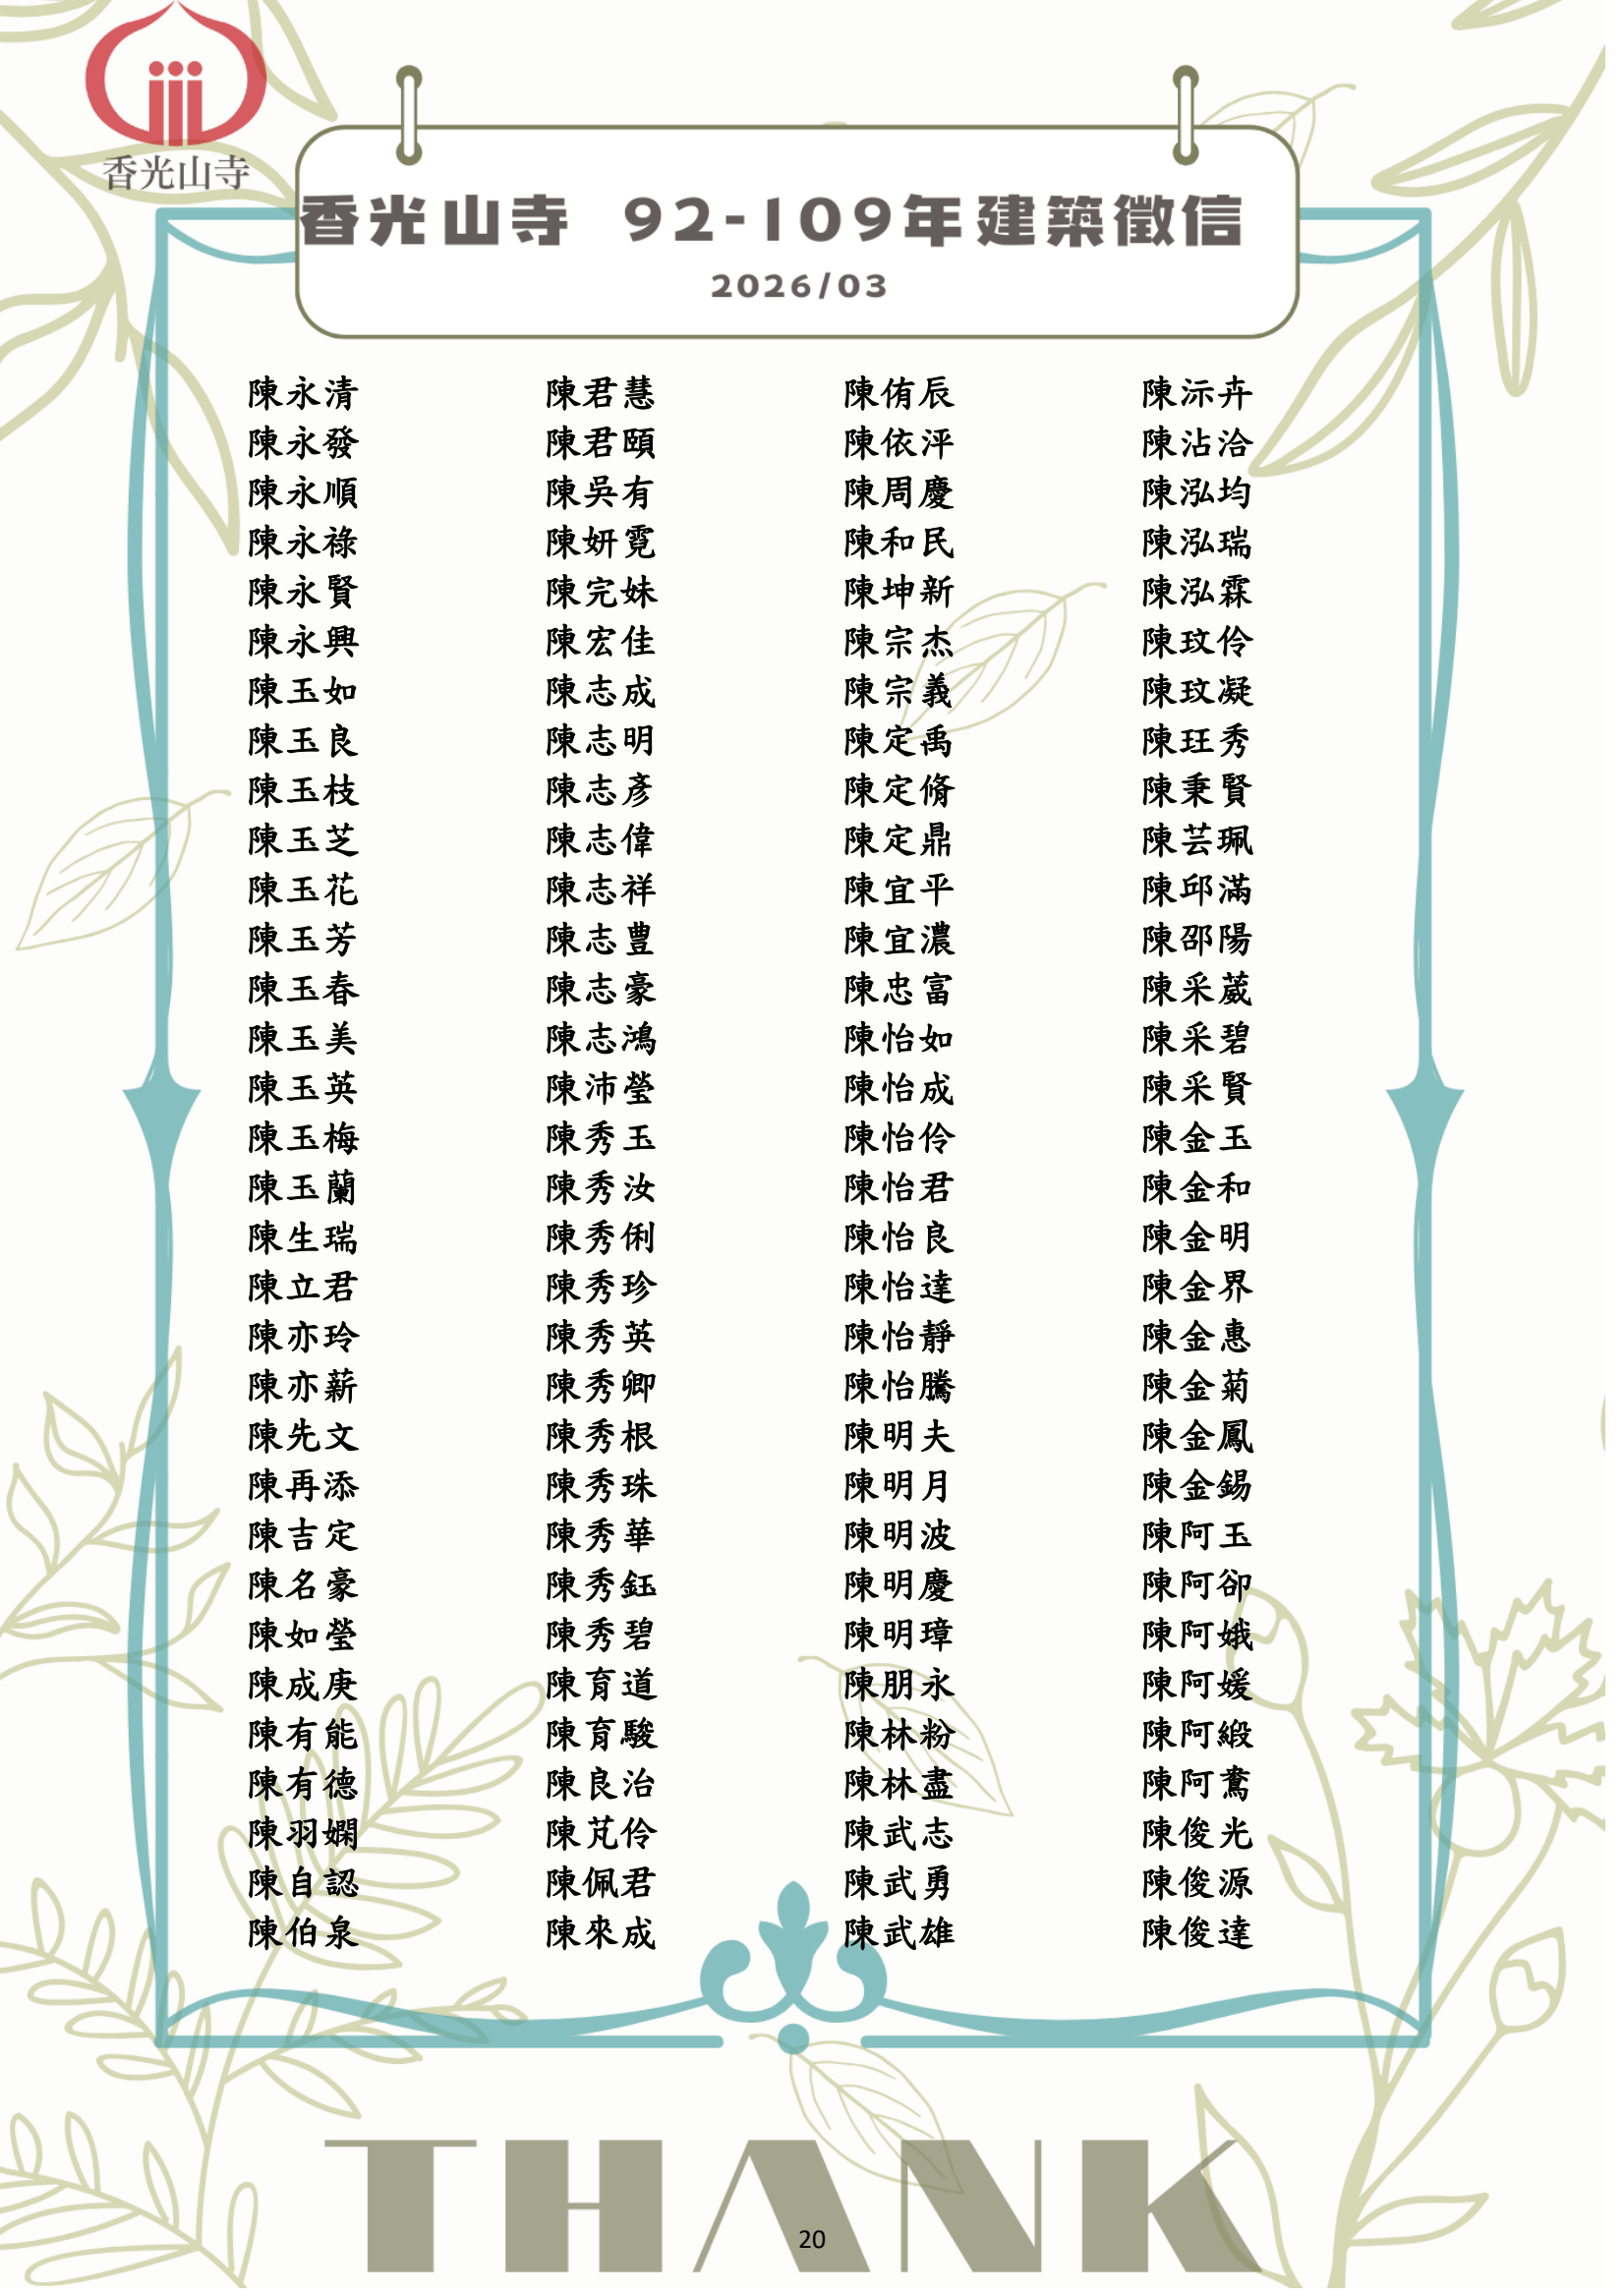 香光山寺
香光山寺 92-109年建築徵信
2026/03
陳永清 陳君慧 陳侑辰 陳沶卉
陳永發 陳君頤 陳依泙 陳沾洽
陳永順 陳吳有 陳周慶 陳泓均
陳永祿 陳妍霓 陳和民 陳泓瑞
陳永賢 陳完妹 陳坤新 陳泓霖
陳永興 陳宏佳 陳宗杰 陳玟伶
陳玉如 陳志成 陳宗義 陳玟凝
陳玉良 陳志明 陳定禹 陳玨秀
陳玉枝 陳志彥 陳定脩 陳秉賢
陳玉芝 陳志偉 陳定鼎 陳芸珮
陳玉花 陳志祥 陳宜平 陳邱滿
陳玉芳 陳志豊 陳宜濃 陳邵陽
陳玉春 陳志豪 陳忠富 陳采葳
陳玉美 陳志鴻 陳怡如 陳采碧
陳玉英 陳沛瑩 陳怡成 陳采賢
陳玉梅 陳秀玉 陳怡伶 陳金玉
陳玉蘭 陳秀汝 陳怡君 陳金和
陳生瑞 陳秀俐 陳怡良 陳金明
陳立君 陳秀珍 陳怡達 陳金界
陳亦玲 陳秀英 陳怡靜 陳金惠
陳亦薪 陳秀卿 陳怡騰 陳金菊
陳先文 陳秀根 陳明夫 陳金鳳
陳再添 陳秀珠 陳明月 陳金錫
陳吉定 陳秀華 陳明波 陳阿玉
陳名豪 陳秀鈺 陳明慶 陳阿卻
陳如瑩 陳秀碧 陳明璋 陳阿娥
陳成庚 陳育道 陳朋永 陳阿媛
陳有能 陳育駿 陳林粉 陳阿緞
陳有德 陳良治 陳林盡 陳阿鴦
陳羽嫻 陳芃伶 陳武志 陳俊光
陳自認 陳佩君 陳武勇 陳俊源
陳伯泉 陳來成 陳武雄 陳俊達
THANK
20